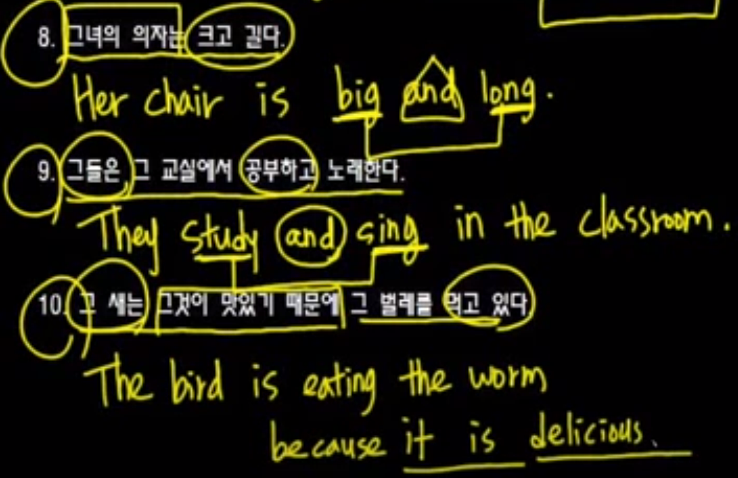 8. 그녀의 의자는 크고 길다.
Her chair is big and long.
9. 그들은 그 교실에서 공부하고 노래한다.
They study and sing in the classroom.
10. 그 새는 그것이 맛있기 때문에 그 벌레를 먹고 있다
The bird is eating the worm
because it is delicious.